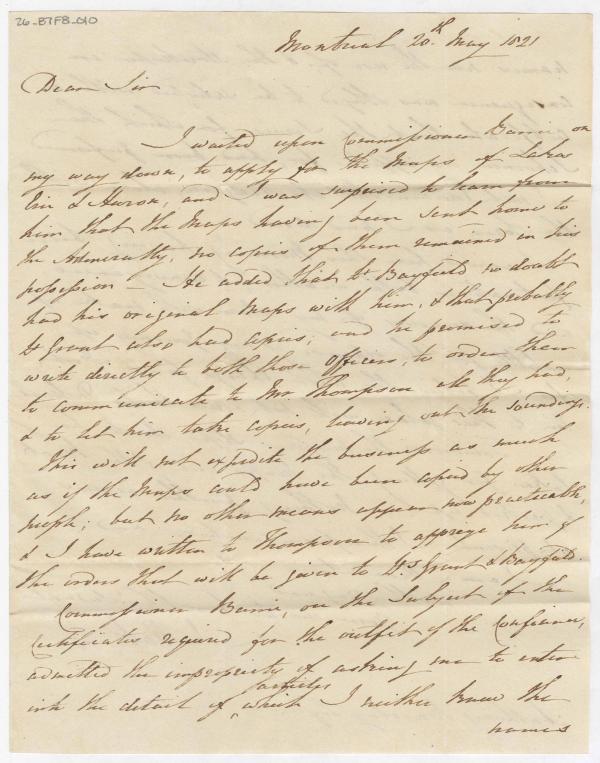 26-B7F8-010
Montreal 20th May 1821
Dear Sir
I waited upon Commissioner Barrie on
my way down, to apply for the Maps of Lakes
Erie & Huron, and I was surprised to learn from
him that the Maps having been sent home to
the Admiralty, no copies of them remained in his
possession — He added that Lt Bayfield no doubt
had his original Maps with him, & that probably
Lt Grant also had copies; and he promised to
write directly to both those officers, to order them
to communicate to Mr Thompson all they had,
& to let him take copies, leaving out the soundings.
This will not expedite the business as much
as if the Maps could have been copied by other
people; but no other means appear now practicable,
& I have written to Thompson to apprize him of
the orders that will be given to Lts Grant & Bayfield.
Commissioner Barrie, on the Subject of the
Certificates required for the outfit of the Confiance,
admitted the impropriety of asking me to enter
into the detail of articles which I neither knew the
names